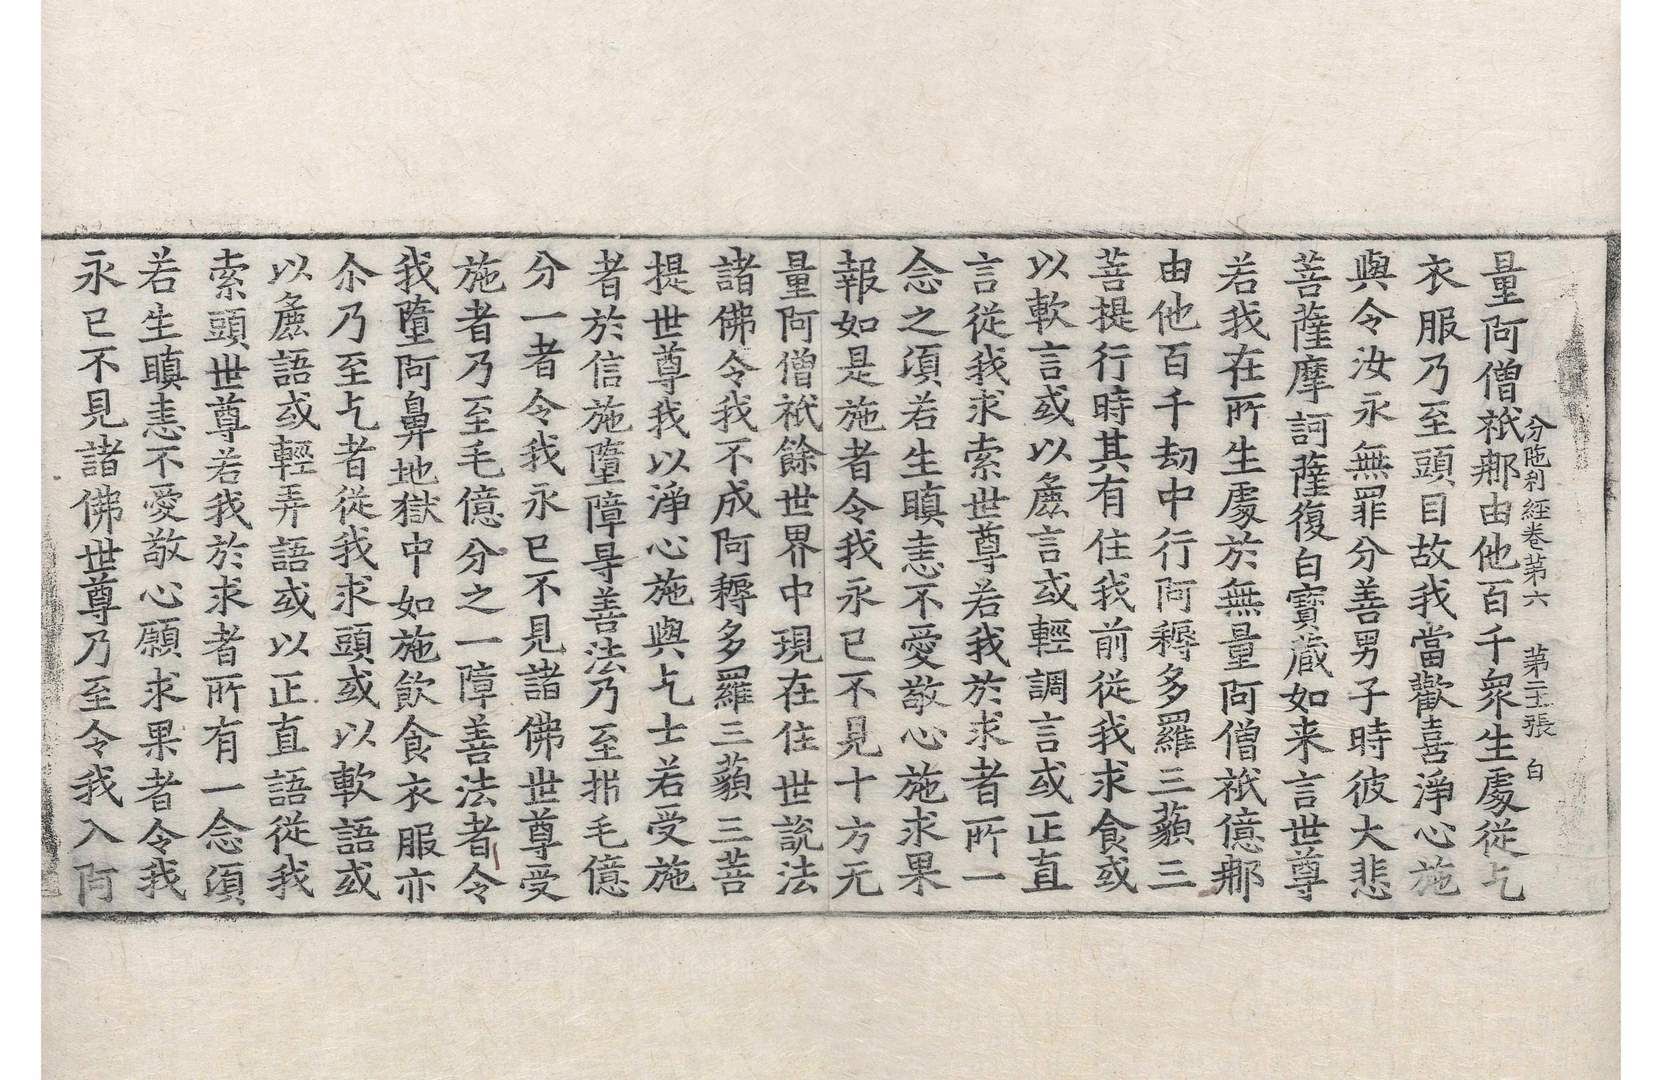 量阿僧祇那由他百千衆生處從乞
分陁利經卷第六　第二十張　白
衣服乃至頭目故我當歡喜淨心施
與令汝永無罪分善男子時彼大悲
菩薩摩訶薩復白寶藏如来言世尊
若我在所生處於無量阿僧祇億那
由他百千劫中行阿耨多羅三藐三
菩提行時其有住我前從我求食或
以軟言或以麁言或輕調言或正直
言從我求索世尊若我於求者所一
念之湏若生瞋恚不愛敬心施求果
報如是施者令我永已不見十方无
量阿僧祇餘世界中現在住世說法
諸佛令我不成阿耨多羅三藐三菩
提世尊我以淨心施與乞士若受施
者於信施墮障㝵善法乃至㭰毛億
分一者令我永已不見諸佛世尊受
施者乃至毛億分之一障善法者令
我墮阿鼻地獄中如施飲食衣服亦
尒乃至乞者從我求頭或以軟語或
以麁語或輕弄語或以正直語從我
索頭世尊若我於求者所有一念湏
若生瞋恚不愛敬心願求果者令我
永已不見諸佛世尊乃至令我入阿